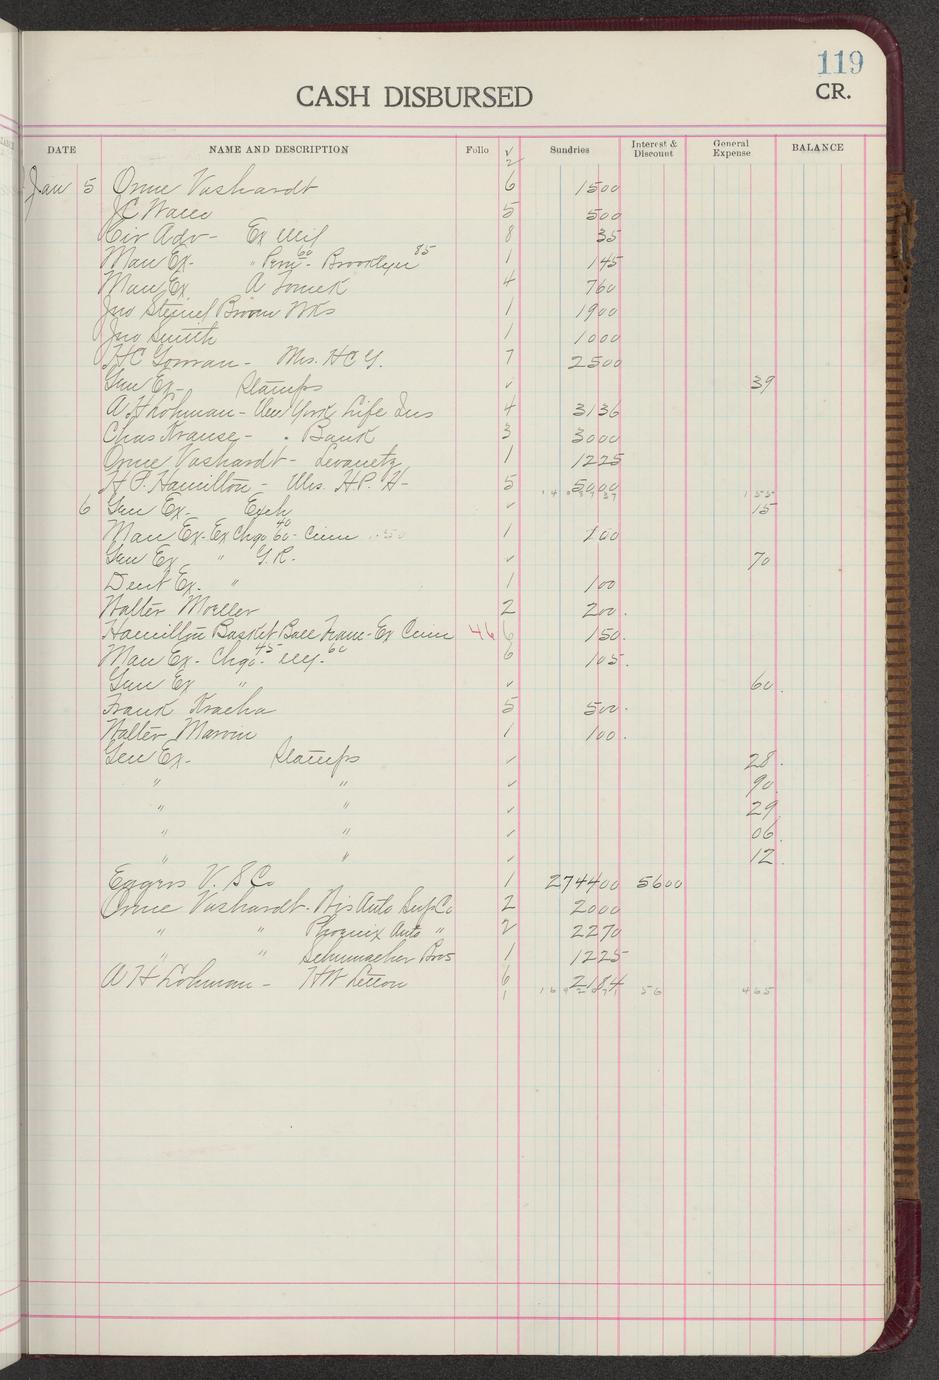 119
CASH DISBURSED
CR.
DATE NAME AND DESCRIPTION Folio √ Sundries Interest & Discount General Expense BALANCE
2
Jan 5 Orme Vashardt 6 1500
J.C. 5 500
Cir Adv - Ex 8 35
Man Ex - " 60 - Brooklyn 85 1 145
Man Ex A 4 760
Jno Steinel Broom Wks 1 1900
Jno Smith 1 1000
H C Gorman - Mrs. H C G. 7 2500
Gen Ex - Stamps ✓ 39
A H Lohman - New York Life Ins 4 3136
Chas Krause - . Bank 3 3000
Orme Vashardt - Levanetz 1 1225
H. P. Hamilton - Mrs. H. P. H - 5 5000
155
6 Gen Ex - Exch ✓ 15
Man Ex - Ex Chgo 40 60 - Cinn 1 100
Gen Ex " G. R. ✓ 70
Dent Ex. " 1 100
Walter Moeller 2 200.
Hamilton Basket Ball Team - Ex Cinn 46 6 150.
Man Ex - Chgo 45 - 60 6 105.
Gen Ex " ✓ 60.
Frank Kracha 5 500.
Walter 1 100.
Gen Ex - Stamps ✓ 28.
" " ✓ 90.
" " ✓ 29
" " ✓ 06.
" " ✓ 12.
Eggers V. S Co 1 274400 5600
Orme Vashardt - Wis Auto Sup Co 2 2000
" " Phoenix Auto " 2 2270
" " Schumacher Bros 1 1225
A H Lohman - H W Letton 6 2184
1 56 465